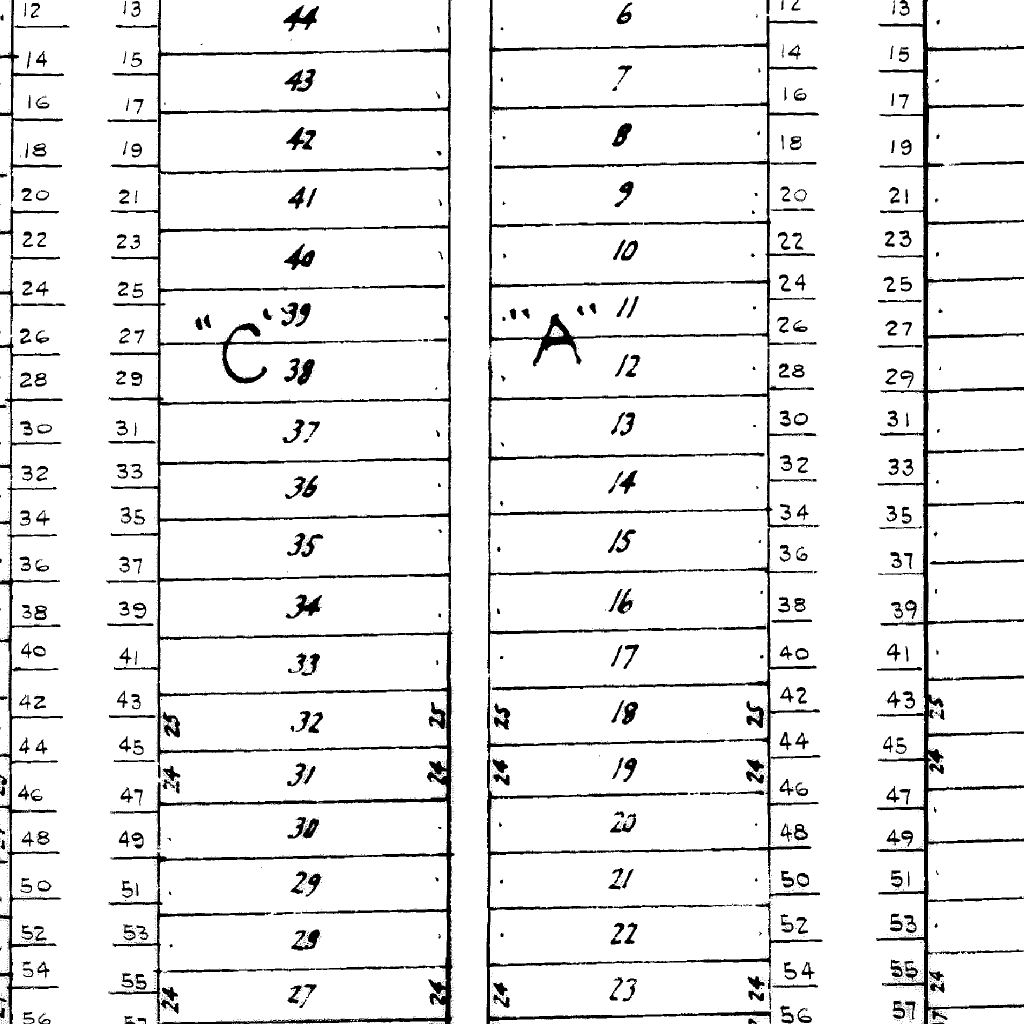 12 13 44 6 12 13
14 15 43 7 14 15
16 17 42 8 16 17
18 19 41 9 18 19
20 21 40 10 20 21
22 23 39 11 22 23
24 25 "C" "A" 24 25
26 27 38 12 26 27
28 29 37 13 28 29
30 31 36 14 30 31
32 33 35 15 32 33
34 35 34 16 34 35
36 37 33 17 36 37
38 39 38 39
40 41 40 41
42 43 25 32 25 25 18 25 42 43 25
44 45 24 31 24 24 19 24 44 45 24
46 47 30 20 46 47
48 49 29 21 48 49
50 51 28 22 50 51
52 53 52 53
54 55 24 27 24 24 23 24 54 55 24
56 56 57